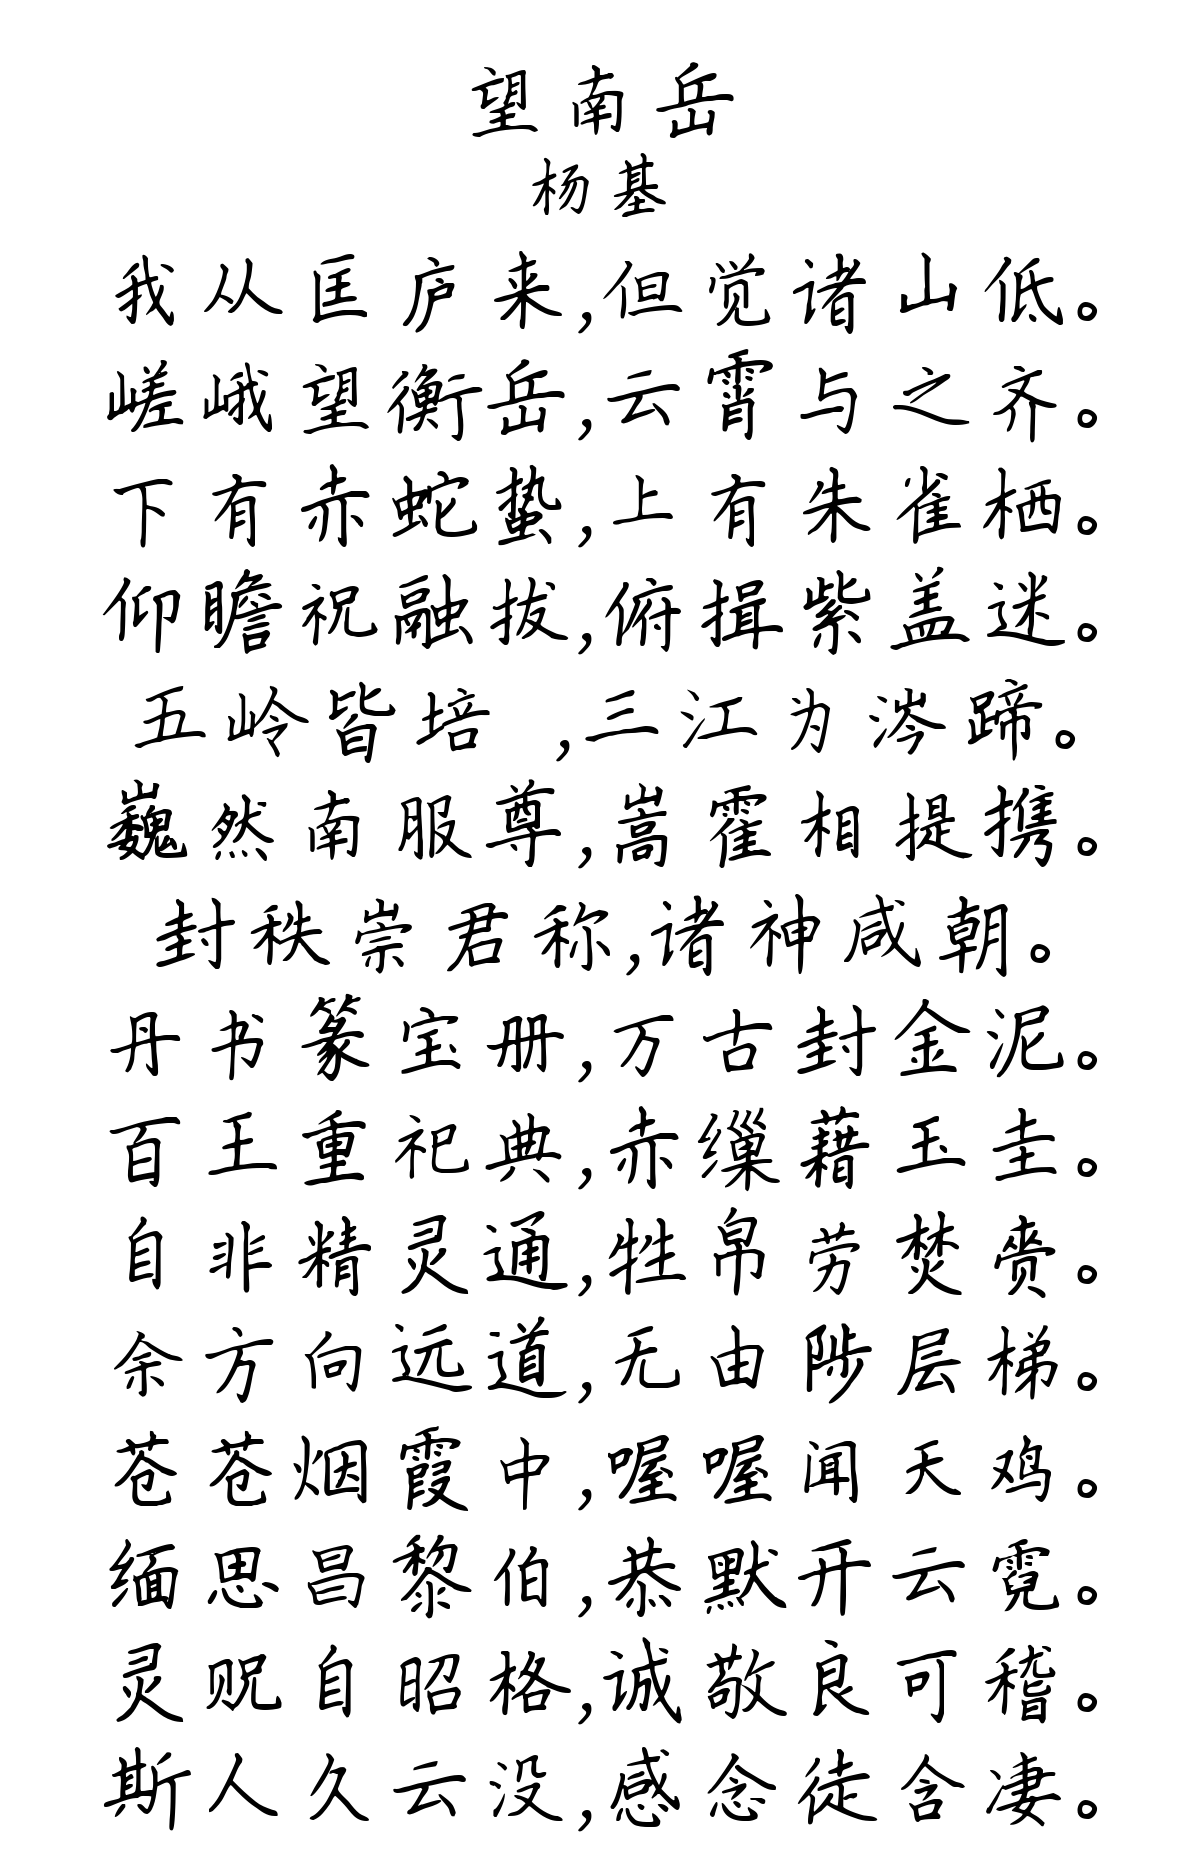 望南岳
杨基
我从匡庐来,但觉诸山低。
嵯峨望衡岳,云霄与之齐。
下有赤蛇蛰,上有朱雀栖。
仰瞻祝融拔,俯揖紫盖迷。
五岭皆培 ,三江为涔蹄。
巍然南服尊,嵩霍相提携。
封秩崇君称,诸神咸朝。
丹书篆宝册,万古封金泥。
百王重祀典,赤缫藉玉圭。
自非精灵通,牲帛劳焚赍。
余方向远道,无由陟层梯。
苍苍烟霞中,喔喔闻天鸡。
缅思昌黎伯,恭默开云霓。
灵贶自昭格,诚敬良可稽。
斯人久云没,感念徒含凄。